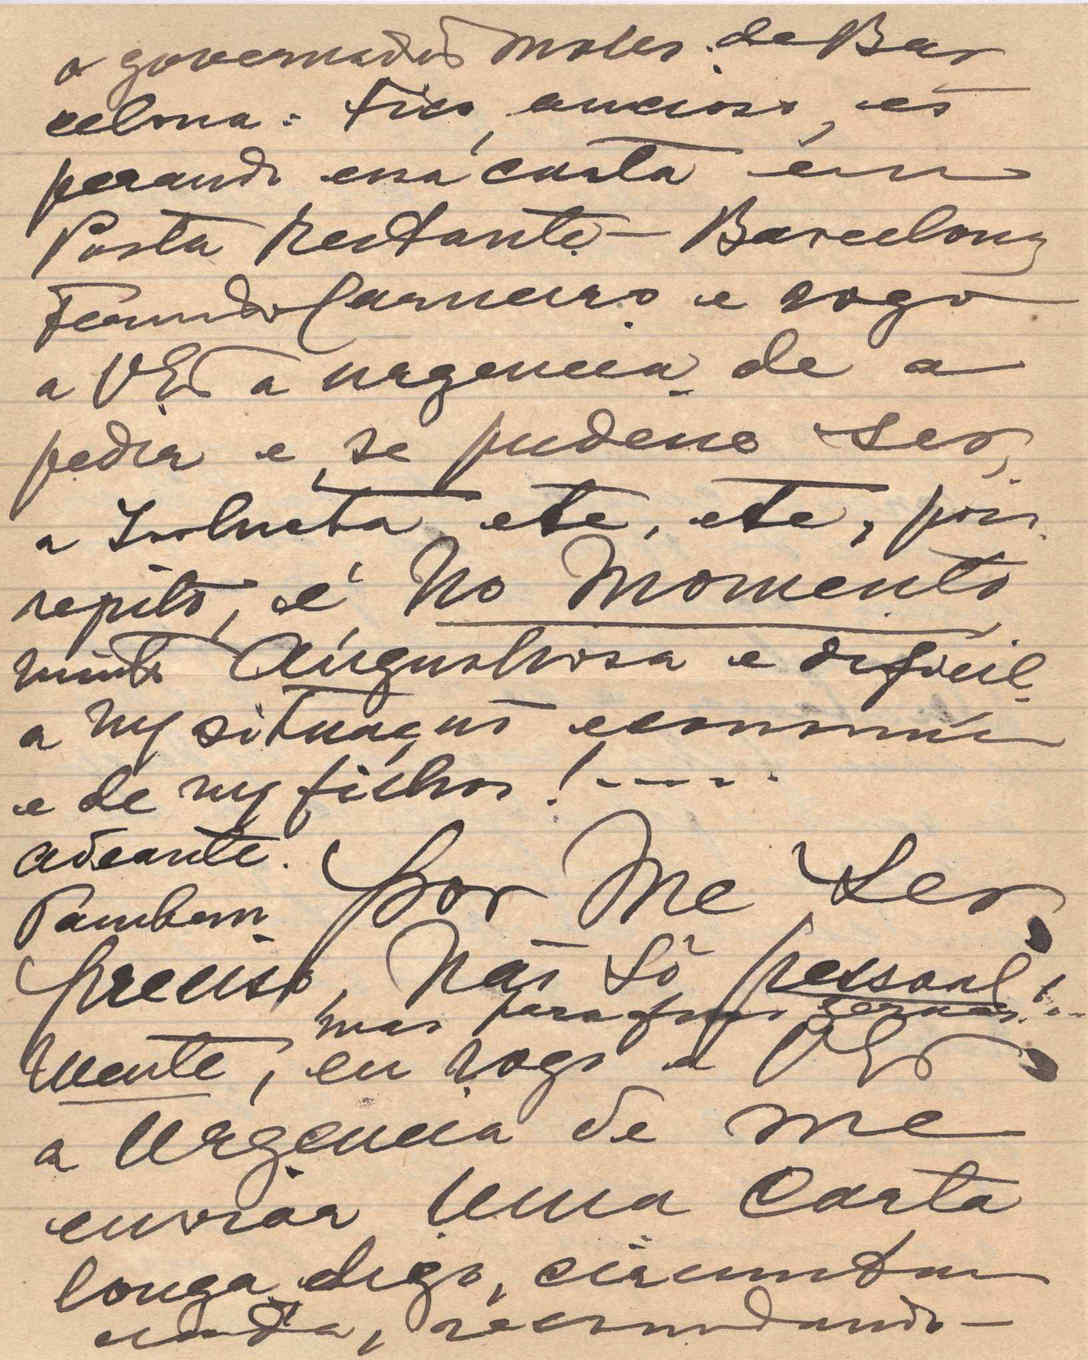 o governador Moles de Bar
celona. Fico, ancioso, es
perando essa carta em
Posta Restante - Barcelona
Fernando Carneiro e rogo
a VEx a urgencia de a
pedir e, se pudesse ser,
a etc, etc, pois
repito, é No Momento
muito Angustiosa e dificil
a m/ situação economica
e de m/ filhos! - - - -
adeante.
Tambem por Me Ser
preciso, Não Só pessoal
mas para fins
mente, eu rogo a VEx
a Urgencia de me
enviar Uma Carta
longa digo, circumstan
ciada, recomendando -